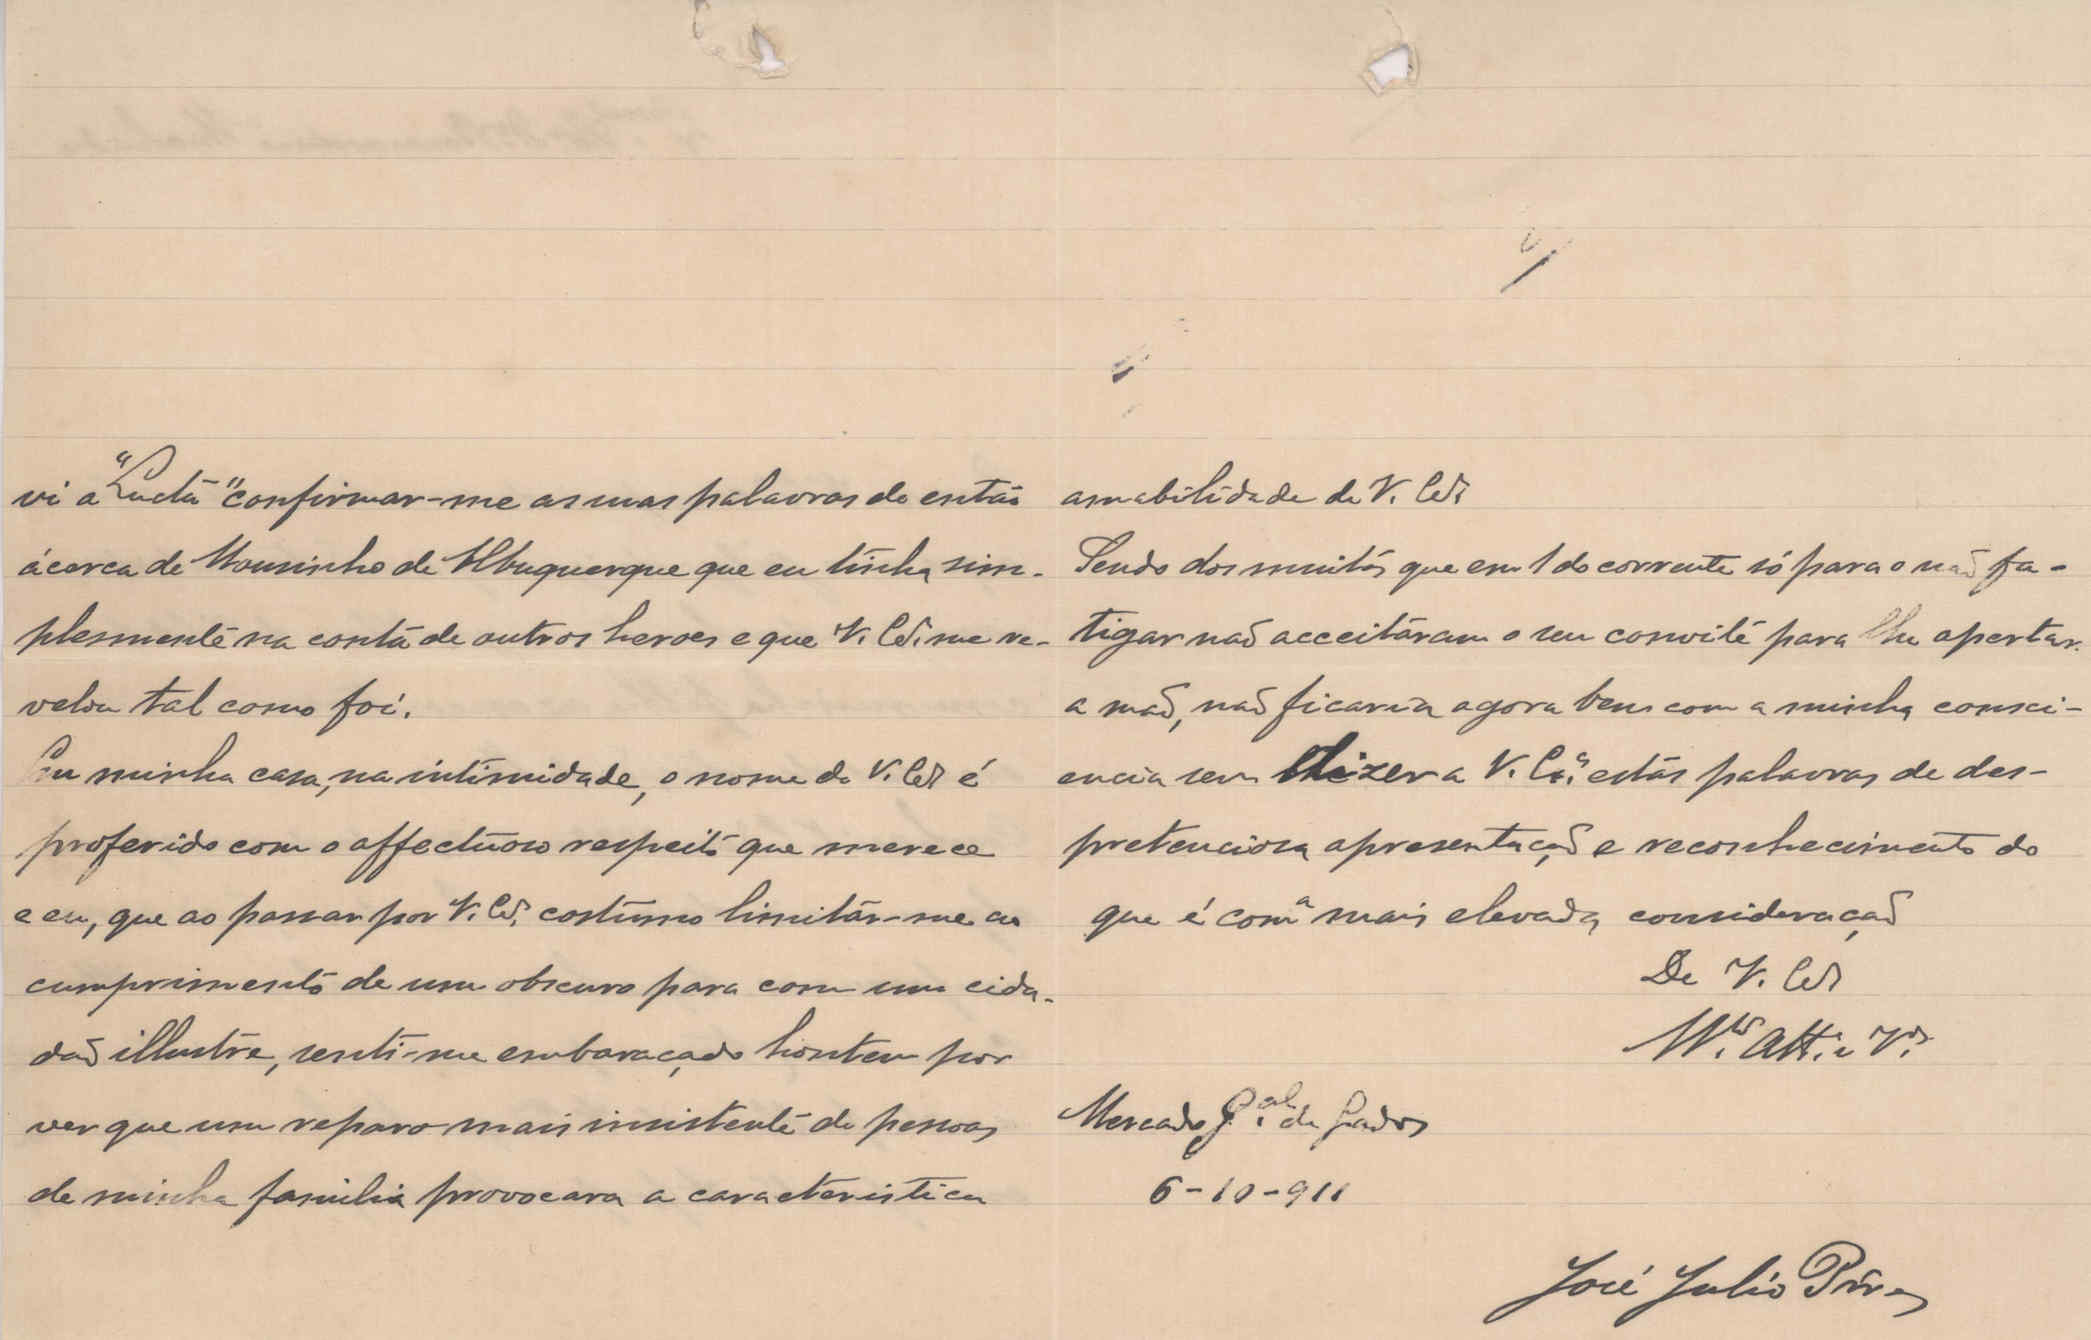 vi a "Lucta" confirmar-me as suas palavras de então
ácerca de Mousinho de Albuquerque que eu tinha sim-
plesmente na conta de outros heroes e que V. Ex.ª me re-
velou tal como foi.
Em minha casa, na intimidade, o nome de V. Ex.ª é
proferido com o affectuoso respeito que merece
e eu, que ao passar por V. Ex.ª costumo limitár-me ao
cumprimento de um obscuro para com um cida-
dão illustre, senti-me embaraçado hontem por
ver que um reparo mais insistente de pessoas
de minha familia provocara a caracteristica
amabilidade de V. Ex.ª
Sendo dos muitos que em 1 do corrente só para o não fa-
tigar não acceitáram o seu convite para lhe apertar
a mão, não ficaria agora bem com a minha consci-
encia sem dizer a V. Ex.ª estas palavras de des-
pretenciosa apresentação e reconhecimento do
que é com a mais elevada consideração
De V. Ex.ª
M.to Att.º e V.or
Mercado G.al de Gados
6-10-911
José Julio Pires